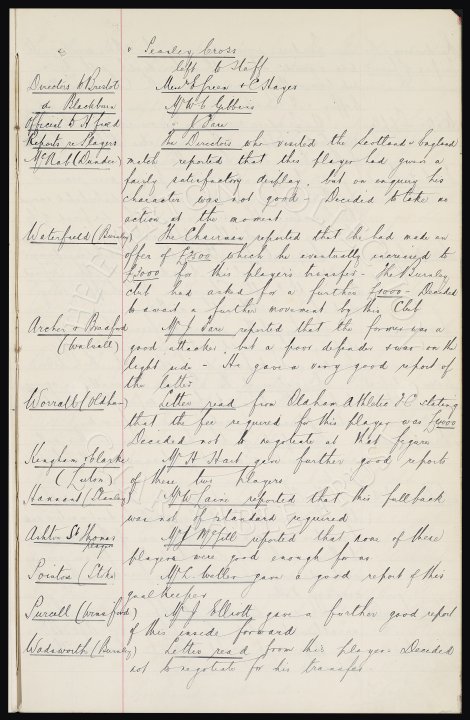 " Stanley Cross
left to Staff
Directors to Bristol Messrs Green & C Hayes
d. Blackburn Mr W C Gibbins
Official to H'field " J Tare
Reports re Players The Directors who visited the Scotland v England
McNab (Dundee) match reported that this player had given a
fairly satisfactory display, but on enquiry his
character was not good - Decided to take no
action at the moment
Waterfield (Burnley) The Chairman reported that he had made an
offer of £2500 which he eventually increased to
£3000 for this player's transfer - The Burnley
club had asked for a further £1000 - Decided
to await a further movement by this Club
Archer & Bradford Mr J. Tare reported that the former was a
(Walsall) good attacker, but a poor defender & was on the
light side - He gave a very good report of
the latter
Worrall (Oldham) Letter read from Oldham Athletic F.C. stating
that the fee required for this player was £4000
Decided not to negotiate at that figure
Kingham & Clarke Mr H Hart gave further good reports
(Luton) of these two players
Hannant (Stanley) Mr W Caine reported that this full back
was not of standard required
Ashton St Thomas Mr J McGill reported that none of these
players players were good enough for us
Pointon (Stoke) Mr L. Weller gave a good report of this
goalkeeper
Purcell Mr J Elliott gave a further good report
of this inside forward
Wadsworth (Burnley) Letter read from this player - Decided
not to negotiate for his transfer